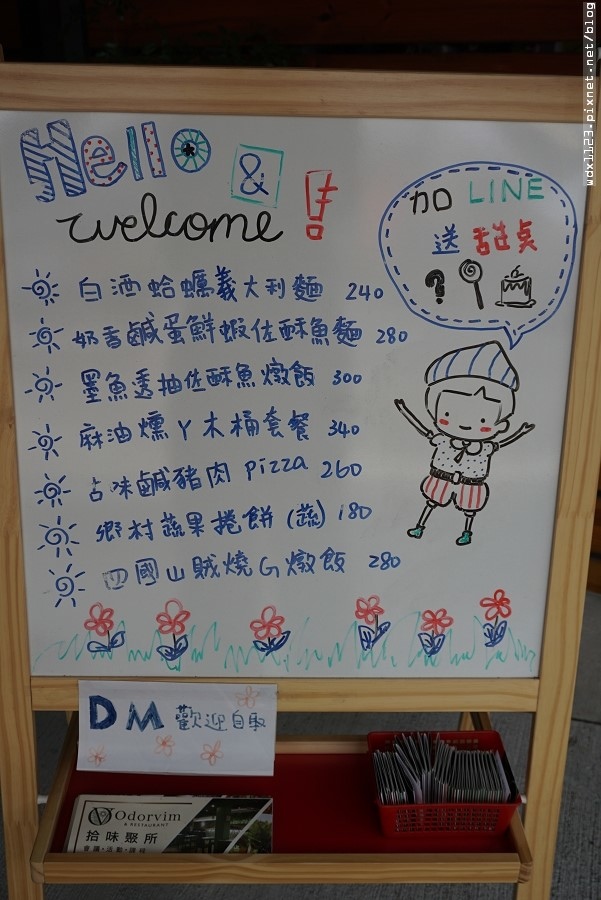 Hello
&
welcome !
加 LINE
送 甜桌
?
白酒蛤蠣義大利麵 240
奶香鹹蛋鮮蝦佐酥魚麵 280
墨魚透抽佐酥魚燉飯 300
麻油燻ㄚ木桶套餐 340
古味鹹豬肉 pizza 260
鄉村蔬果捲餅 (蔬) 180
四國山賊燒G燉飯 280
DM 歡迎自取
Odorvim
& RESTAURANT
拾味聚所
wdx1123.pixnet.net/blog